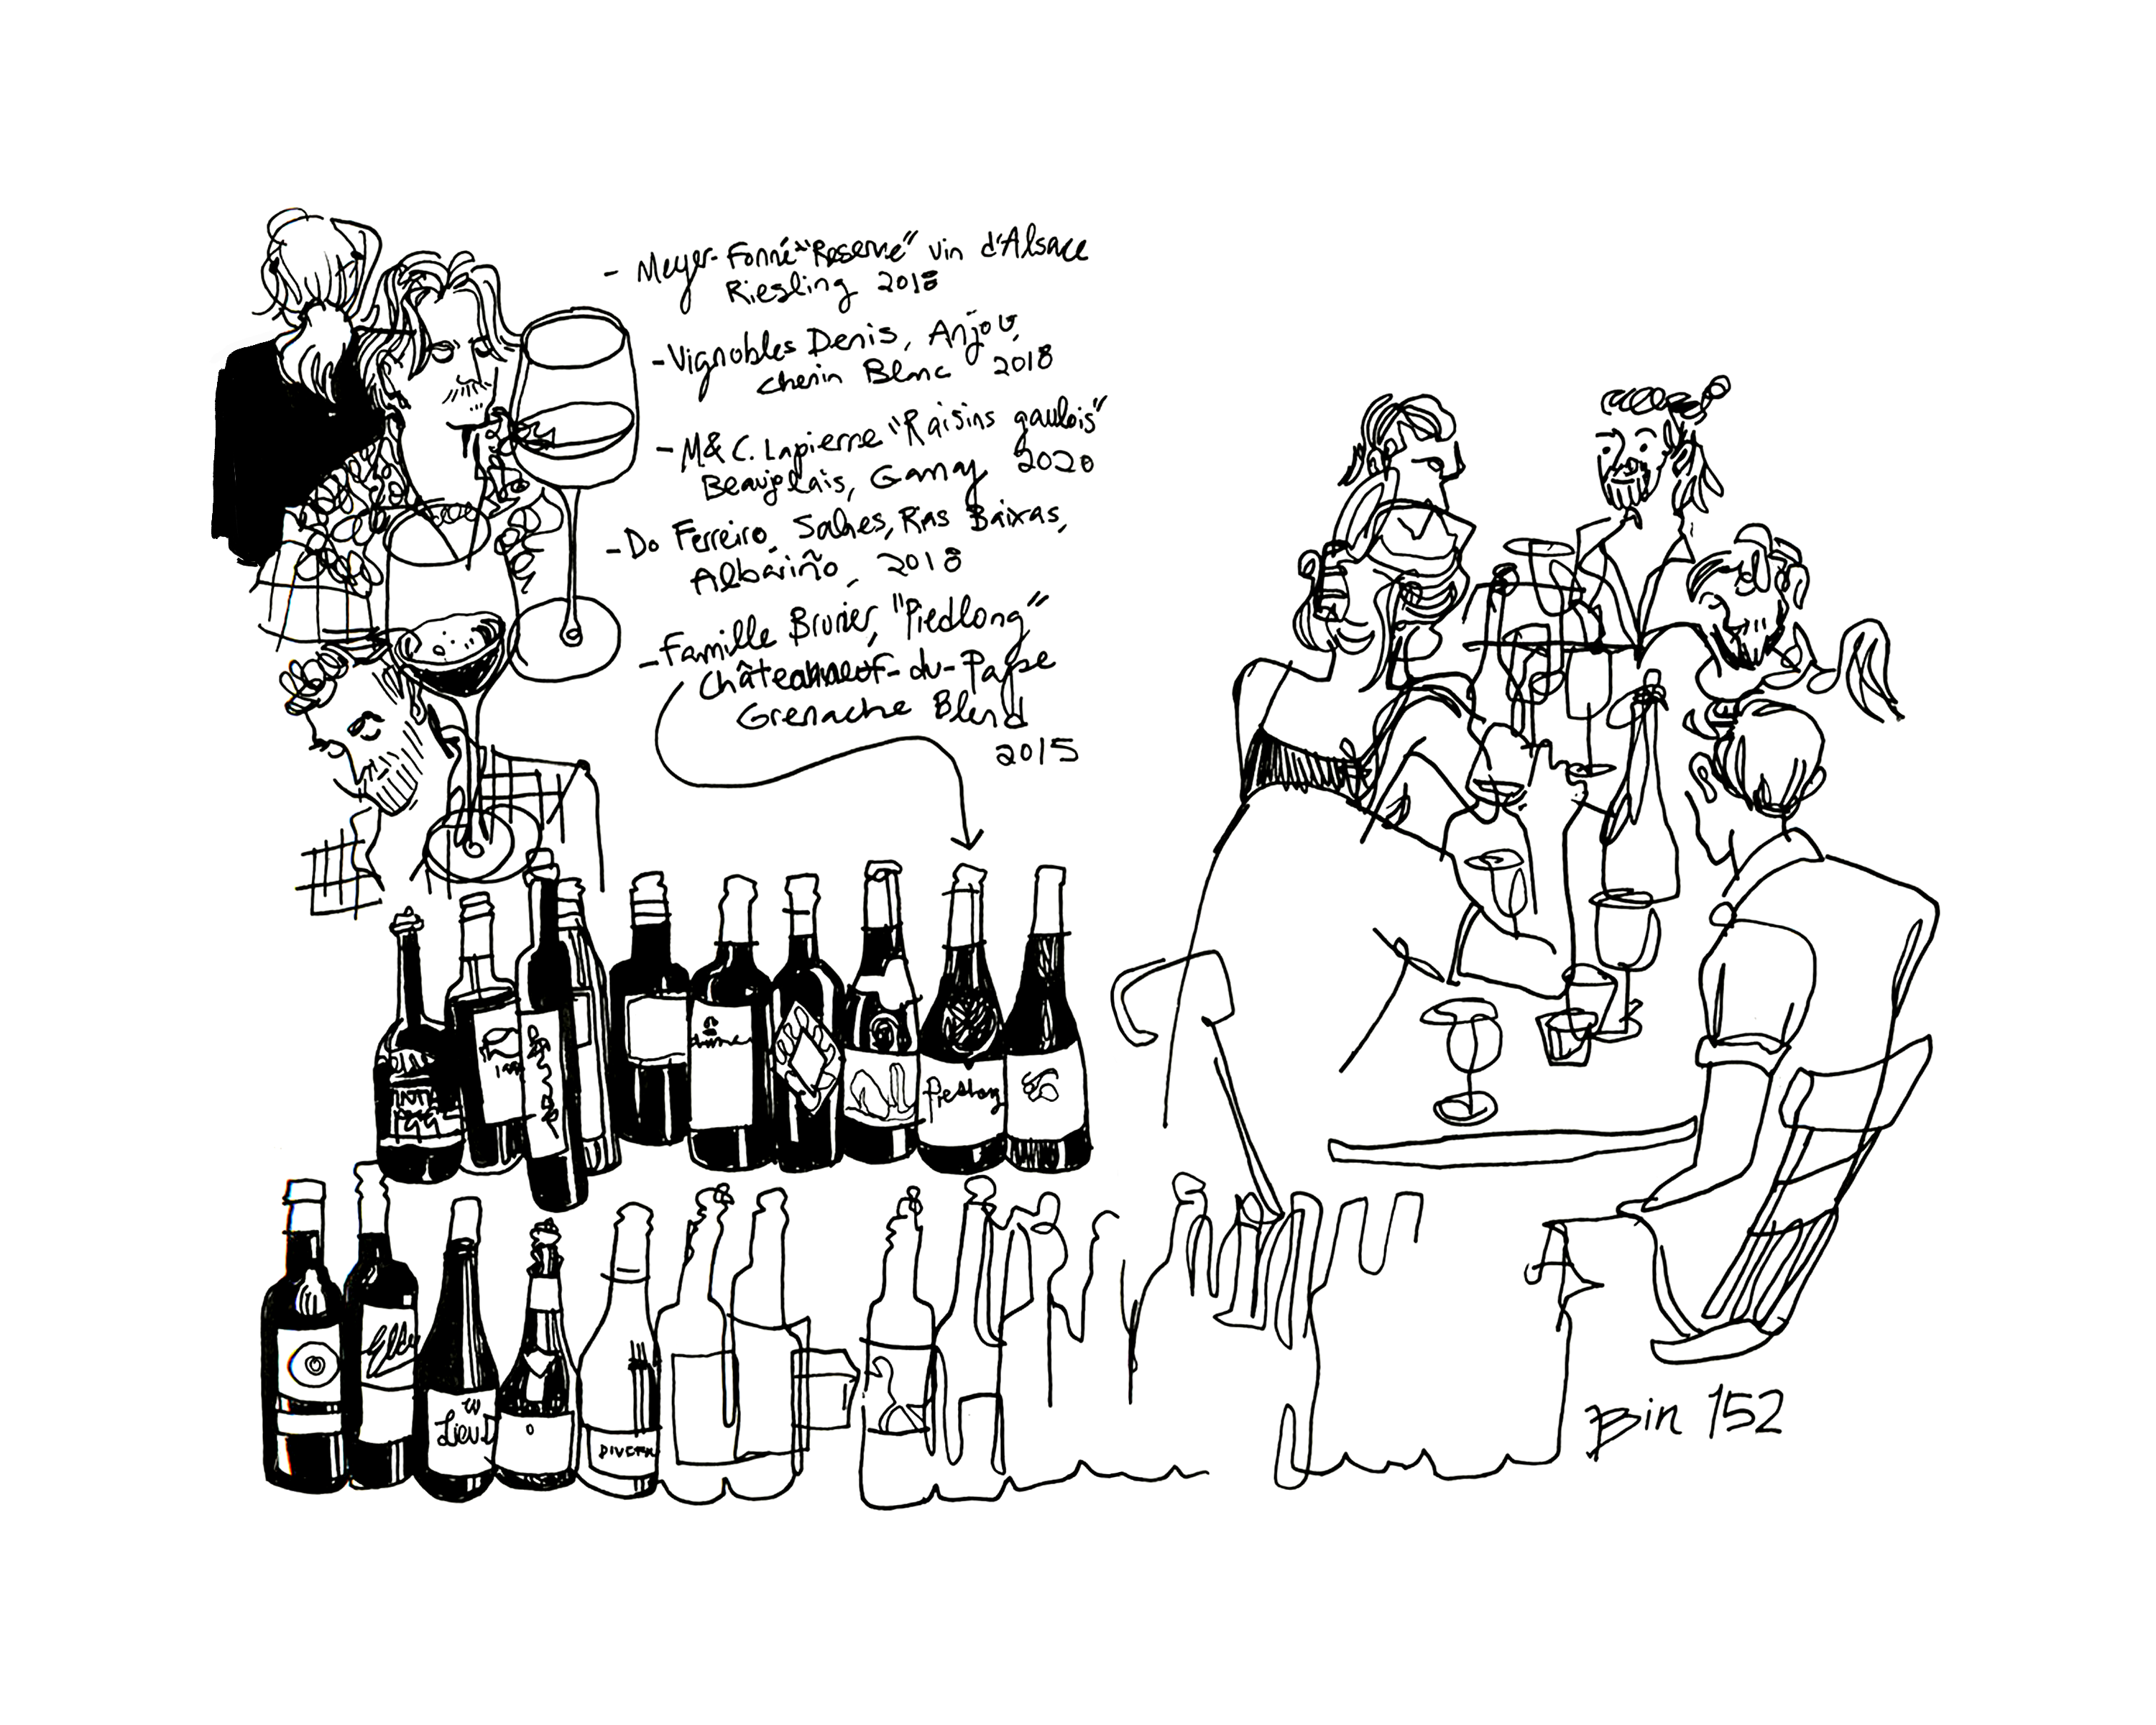 - Meyer-Fonné "Reserve" vin d'Alsace
Riesling 2018
- Vignobles Denis, Anjou,
Chenin Blanc 2018
- M & C. Lapierre "Raisins gaulois"
Beaujolais, Gamay 2020
- Do Ferreiro, Rias Baixas,
Albariño, 2018
- Famille Brunier, "Piedlong"
Châteauneuf-du-Pape
Grenache Blend
2015
Piedlong
Lieu
DIVERN
Bin 152